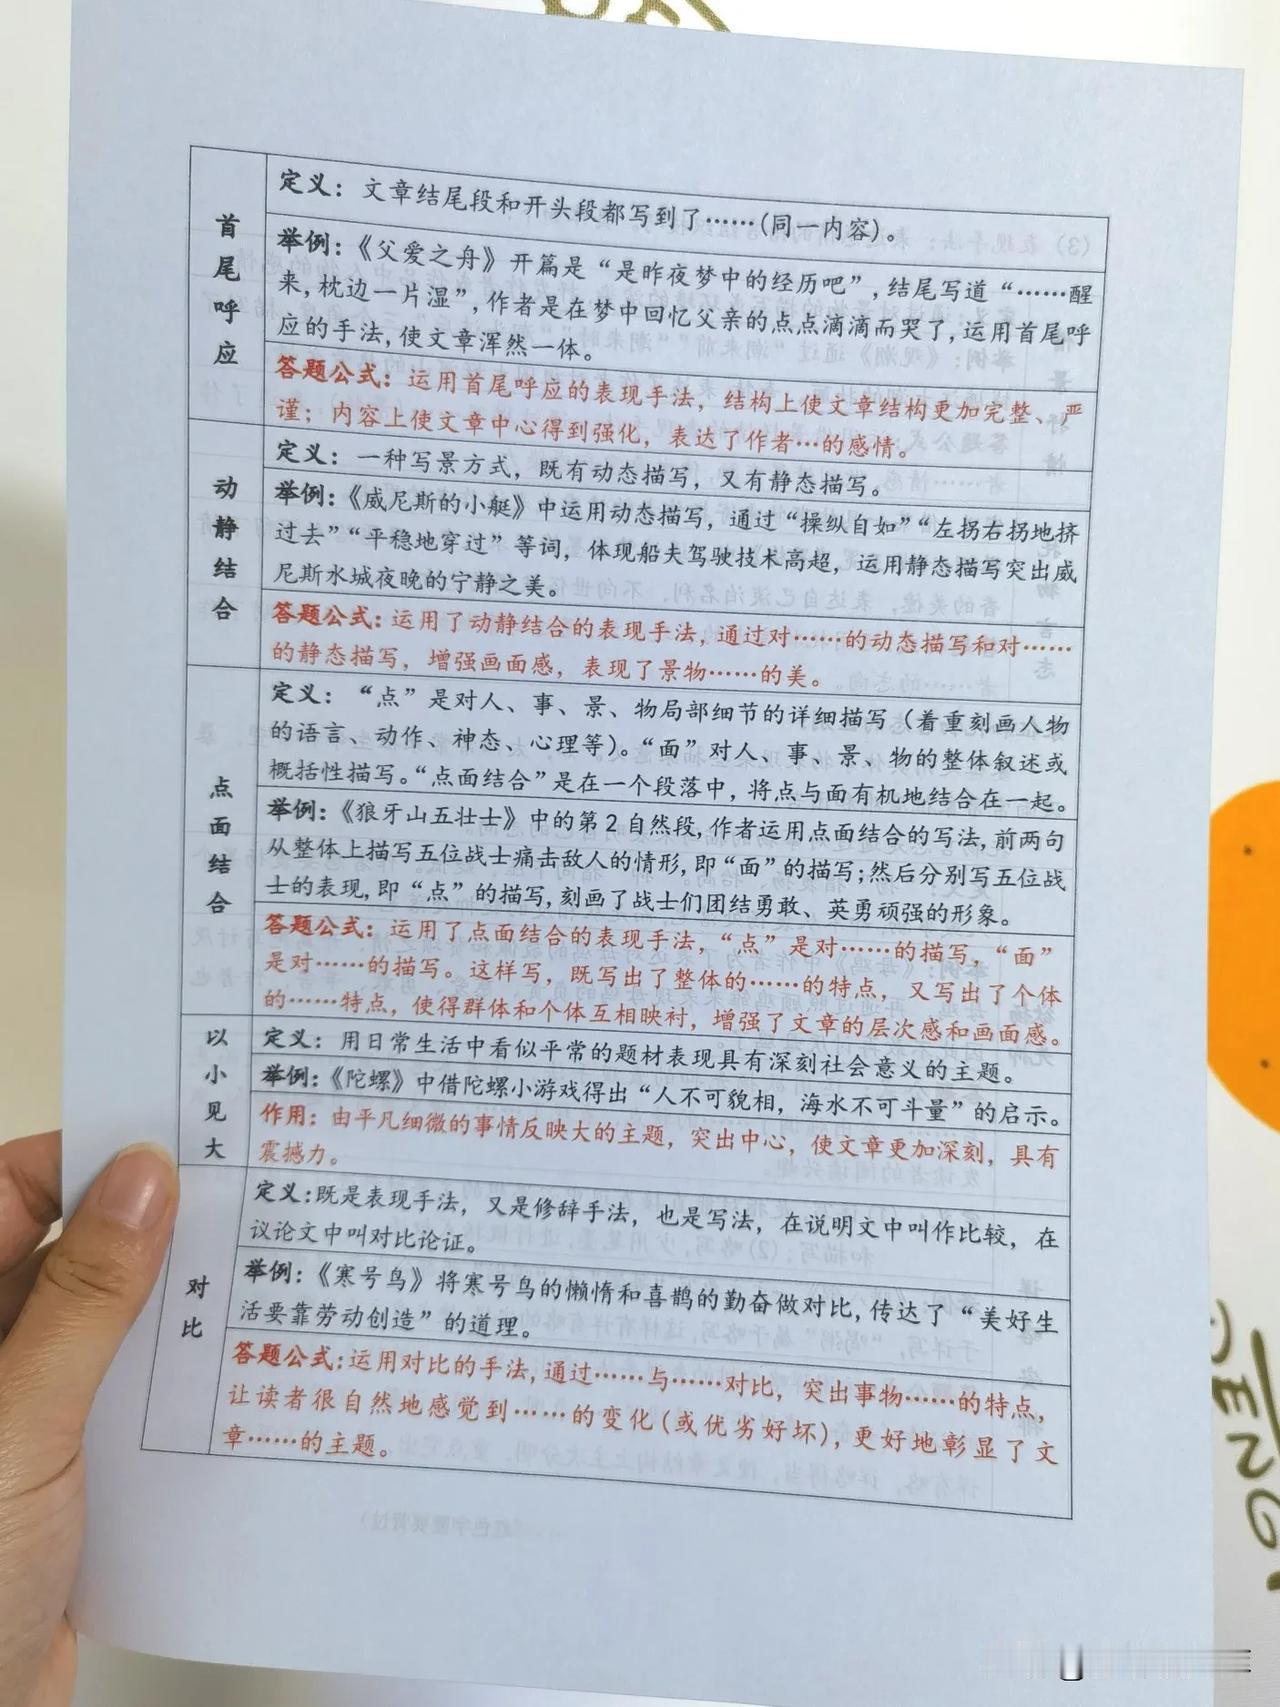 首尾呼应
定义：文章结尾段和开头段都写到了……(同一内容)。
举例：《父爱之舟》开篇是“是昨夜梦中的经历吧”，结尾写道“……醒
来，枕边一片湿”，作者是在梦中回忆父亲的点点滴滴而哭了，运用首尾呼
应的手法，使文章浑然一体。
答题公式：运用首尾呼应的表现手法，结构上使文章结构更加完整、严
谨；内容上使文章中心得到强化，表达了作者…的感情。
动静结合
定义：一种写景方式，既有动态描写，又有静态描写。
举例：《威尼斯的小艇》中运用动态描写，通过“操纵自如”“左拐右拐地挤
过去”“平稳地穿过”等词，体现船夫驾驶技术高超，运用静态描写突出威
尼斯水城夜晚的宁静之美。
答题公式：运用了动静结合的表现手法，通过对……的动态描写和对……
的静态描写，增强画面感，表现了景物……的美。
点面结合
定义：“点”是对人、事、景、物局部细节的详细描写（着重刻画人物
的语言、动作、神态、心理等）。“面”对人、事、景、物的整体叙述或
概括性描写。“点面结合”是在一个段落中，将点与面有机地结合在一起。
举例：《狼牙山五壮士》中的第2自然段，作者运用点面结合的写法，前两句
从整体上描写五位战士痛击敌人的情形，即“面”的描写；然后分别写五位战
士的表现，即“点”的描写，刻画了战士们团结勇敢、英勇顽强的形象。
答题公式：运用了点面结合的表现手法，“点”是对……的描写，“面”
是对……的描写。这样写，既写出了整体的……的特点，又写出了个体
的……特点，使得群体和个体互相映衬，增强了文章的层次感和画面感。
以小见大
定义：用日常生活中看似平常的题材表现具有深刻社会意义的主题。
举例：《陀螺》中借陀螺小游戏得出“人不可貌相，海水不可斗量”的启示。
作用：由平凡细微的事情反映大的主题，突出中心，使文章更加深刻，具有
震撼力。
对比
定义：既是表现手法，又是修辞手法，也是写法，在说明文中叫作比较，在
议论文中叫对比论证。
举例：《寒号鸟》将寒号鸟的懒惰和喜鹊的勤奋做对比，传达了“美好生
活要靠劳动创造”的道理。
答题公式：运用对比的手法，通过……与……对比，突出事物……的特点，
让读者很自然地感觉到……的变化(或优劣好坏)，更好地彰显了文
章……的主题。